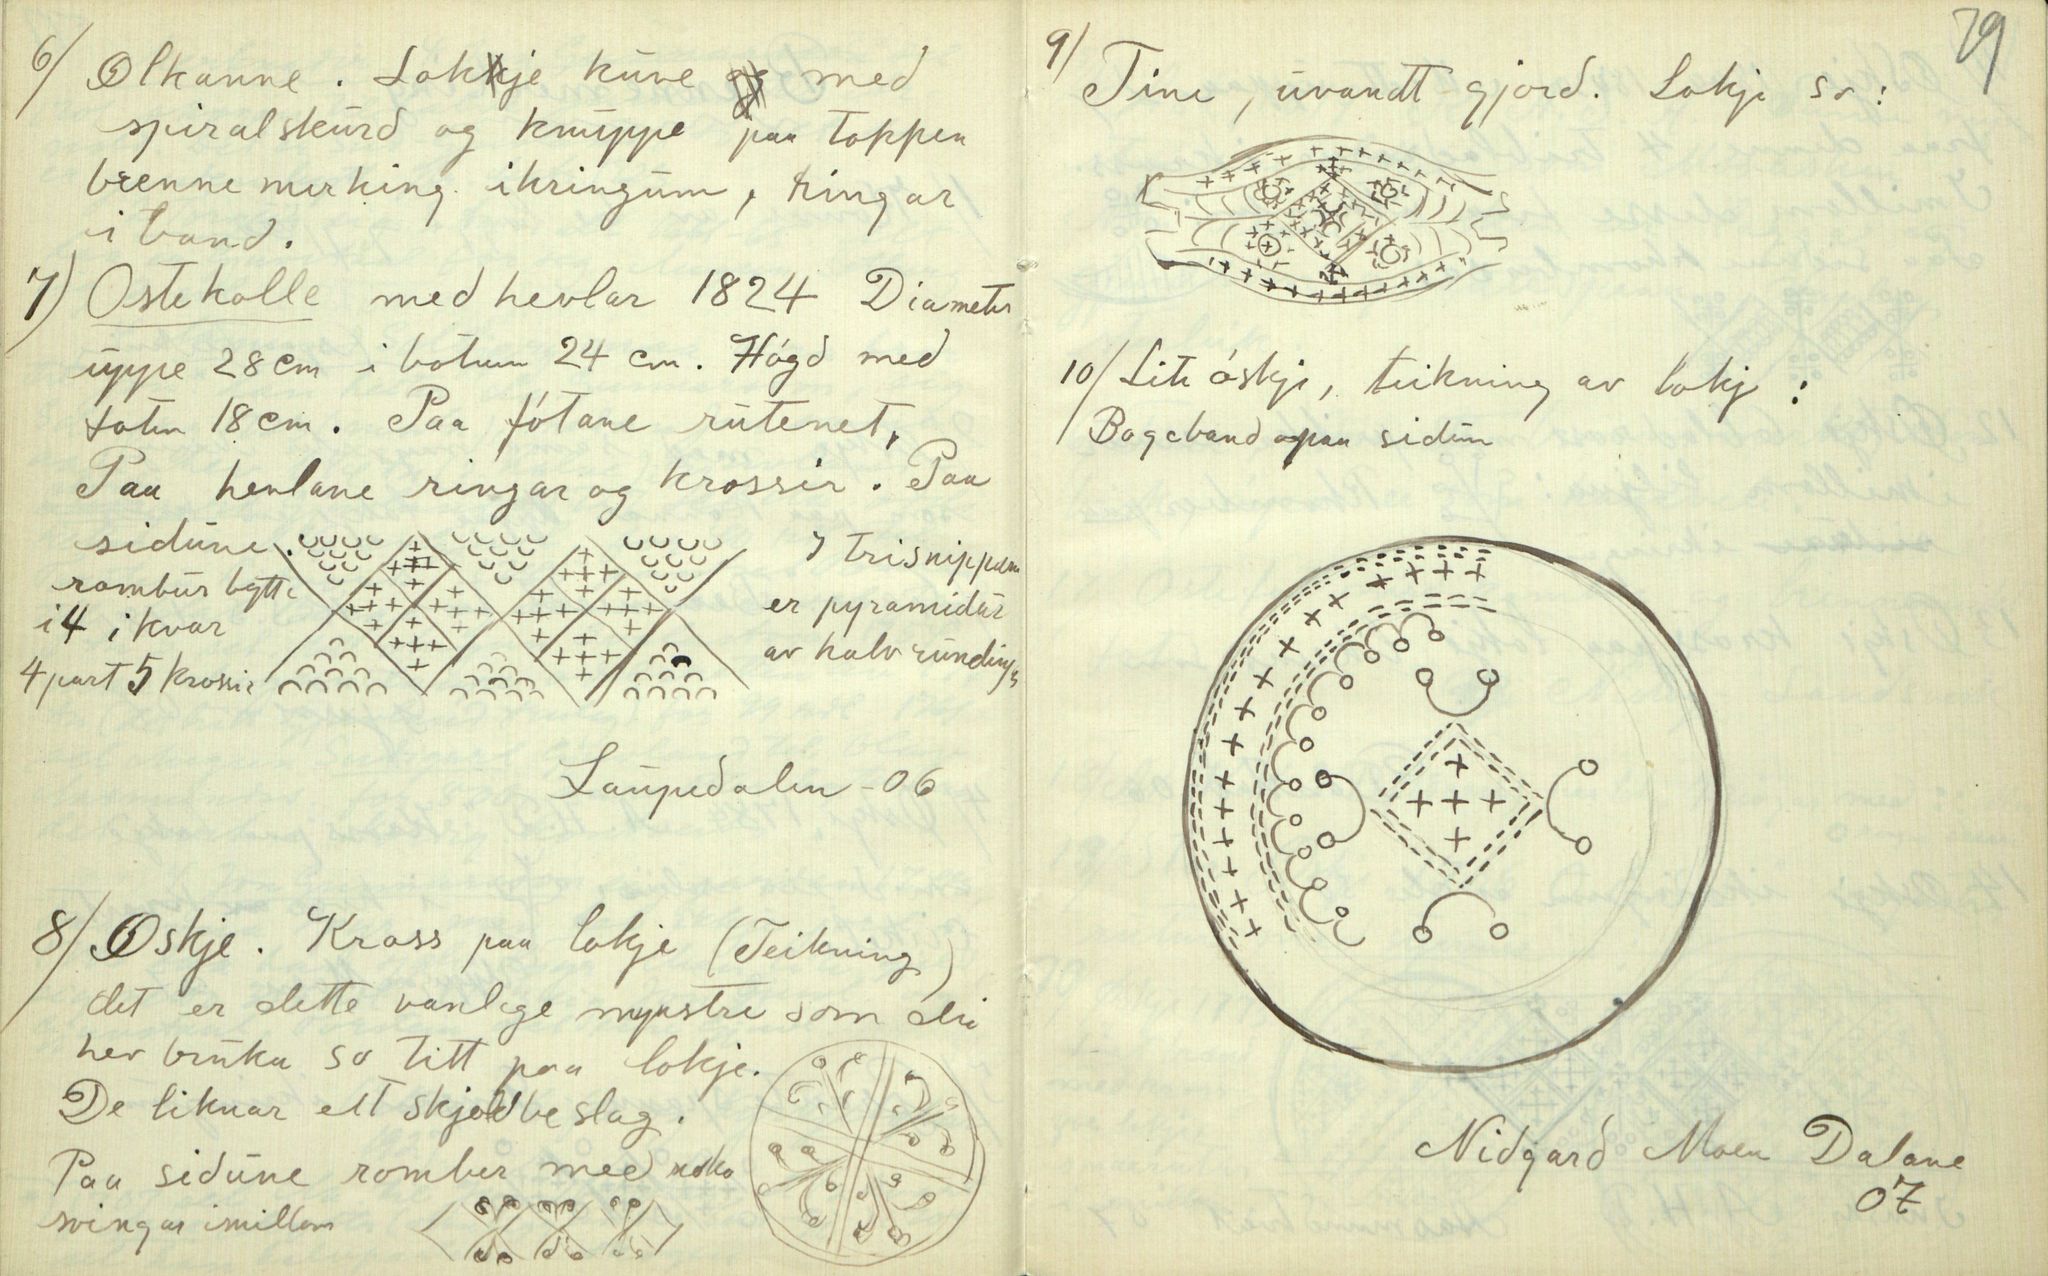 6/ Ølkanne. Lokje kūve med
spiralskūrd og knūppe paa toppen
brenne merking ikringūm, ringar
i band.
7) Ostekolle med hevlar 1824 Diameter
ūppe 28 cm i botnen 24 cm. Högd med
foten 18 cm. Paa fótane rūtenet,
Paa hevlane ringar og krossir. Paa
sidūne.
rombūr bytte
i 4 i kvar
4 part 5 krossir
7 trisnippūm
er pyramidūr
av halv rūndingar
Laūpedalen - 06
8/ Øskje. Kross paa lokje (Teikning)
det er dette vanlege mynstre som dei
hev brūka so titt paa lokje.
De liknar ett skjoldbeslag.
Paa sidūne romber med noko
svingar imillom
79
9/ Tine, ūvandt gjord. Lokje so:
10/ Liti óskje, teikning av lokje:
Bogeband paa sidūn
Nidgard Moen Dalane
07